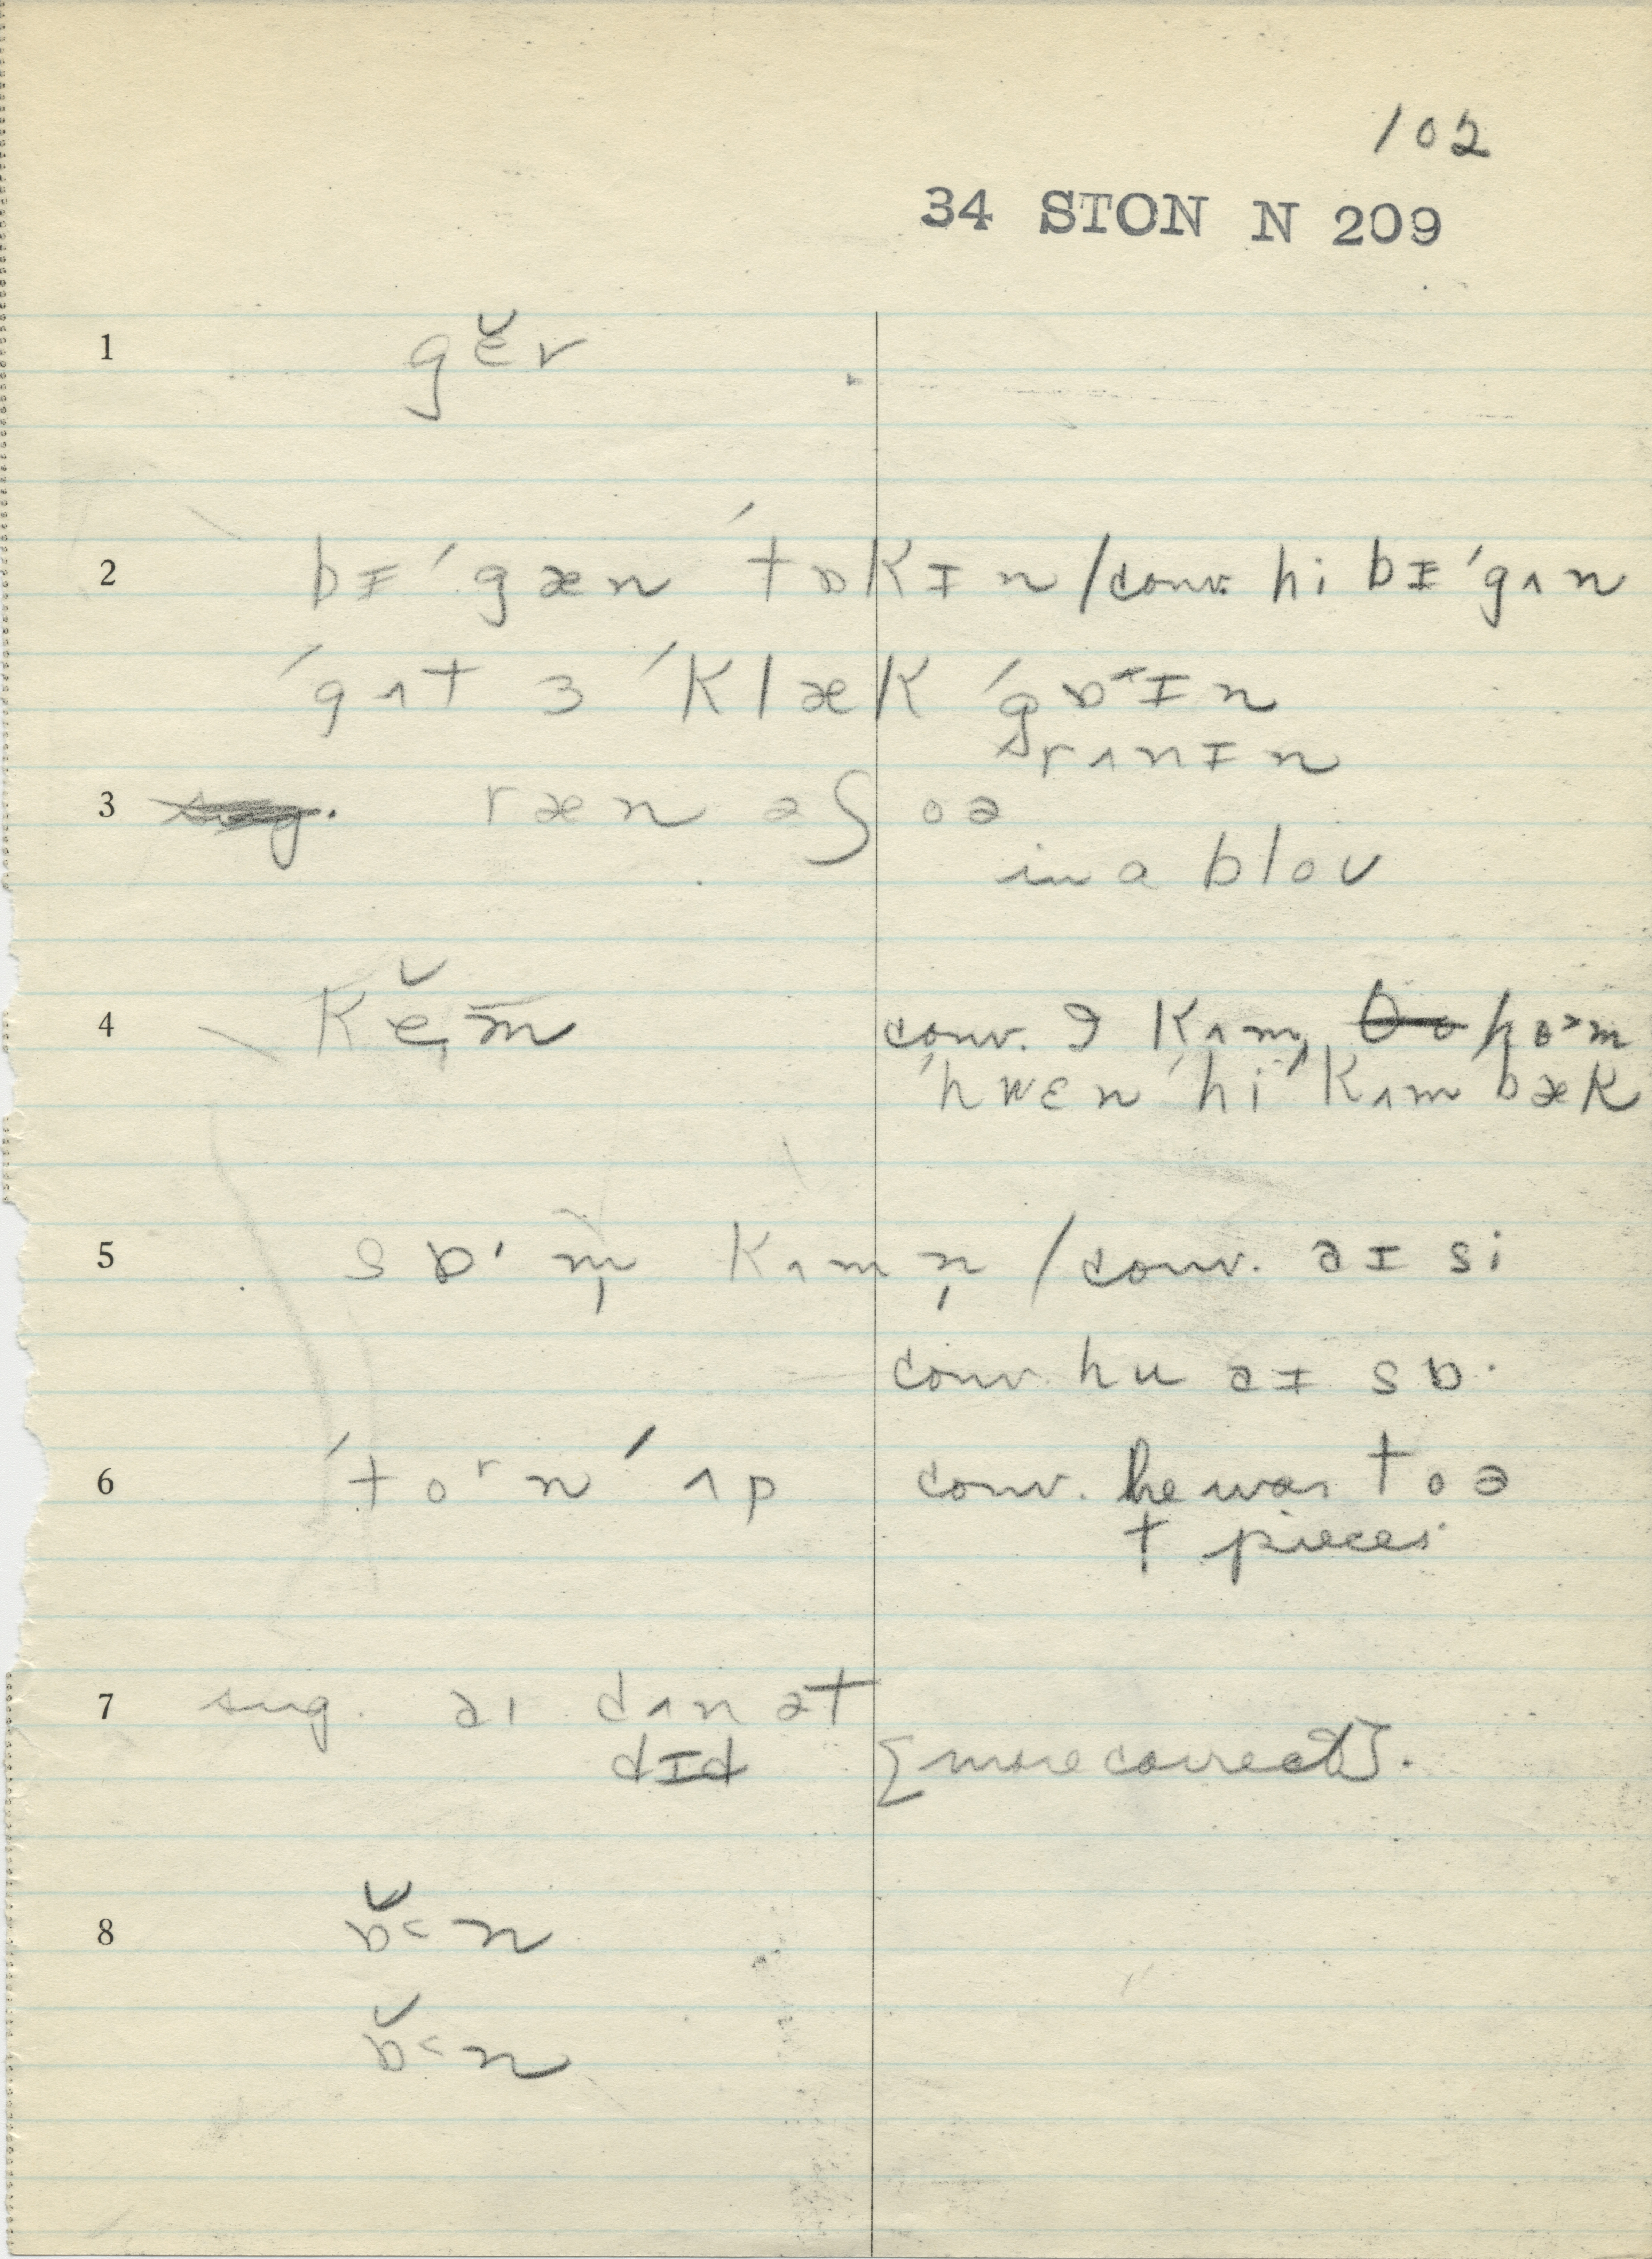 102
34 STON N 209
1 gɛ̆v
2 bɪ ˈgæn ˈtɒkɪn / conv. hi bɪ ˈgʌn
ˈgʌt ɜ ˈklæk ˈgɒ˞ɪn
rʌnɪn
3 ræn əʃoə
in a bloʊ
4 kĕm̄ conv. I kʌm, hoɚm
ˈhwɛn ˈhi ˈkʌm bæk
5 sɒ· m̩ kʌmn̩ / conv. aɪ si
conv. hu aɪ sɒ·
6 ˈtoʳnˈʌp conv. he was toə
t pieces
7 sug. aɪ dʌn ət
dɪd [more correct].
8 ɒ̆˂n
ɒ̆˂n